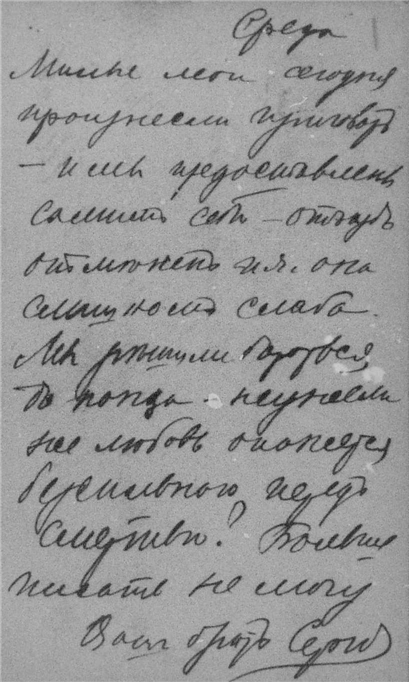 Среда
Милые мои сегодня
произнесли приговоръ
— и мы предоставлены
самимъ себѣ — отъѣздъ
отмѣненъ т.к. она
слишкомъ слаба.
Мы рѣшили бороться
до конца. неужели
же любовь окажется
безсильною передъ
смертью? Больше
писать не могу
Вашъ братъ